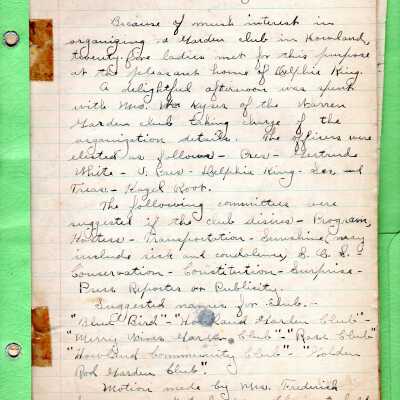 Because of much interest in
organizing a Garden club in Howland,
twenty-five ladies met for this purpose
at the pleasant home of Delphia King.
A delightful afternoon was spent
with Mrs. Kyser of the Warren
Garden club taking charge of the
organization details. The officers were
elected as follows - Pres - Gertrude
White - V. Pres - Delphia King - Sec and
Treas - Hazel Root.
The following committees were
suggested if the club desires - Program,
Hostess - Transportation - Sunshine, may
include sick and condolence,
Conservation - Constitution - Surprise -
Press Reporter or Publicity.
Suggested names for Club. -
"Blue Bird" - "Howland Garden Club" -
"Merry Wives Garden Club" - "Rose Club"
"Howland Community Club" - "Golden
Rod Garden Club".
Motion made by Mrs. Frederick